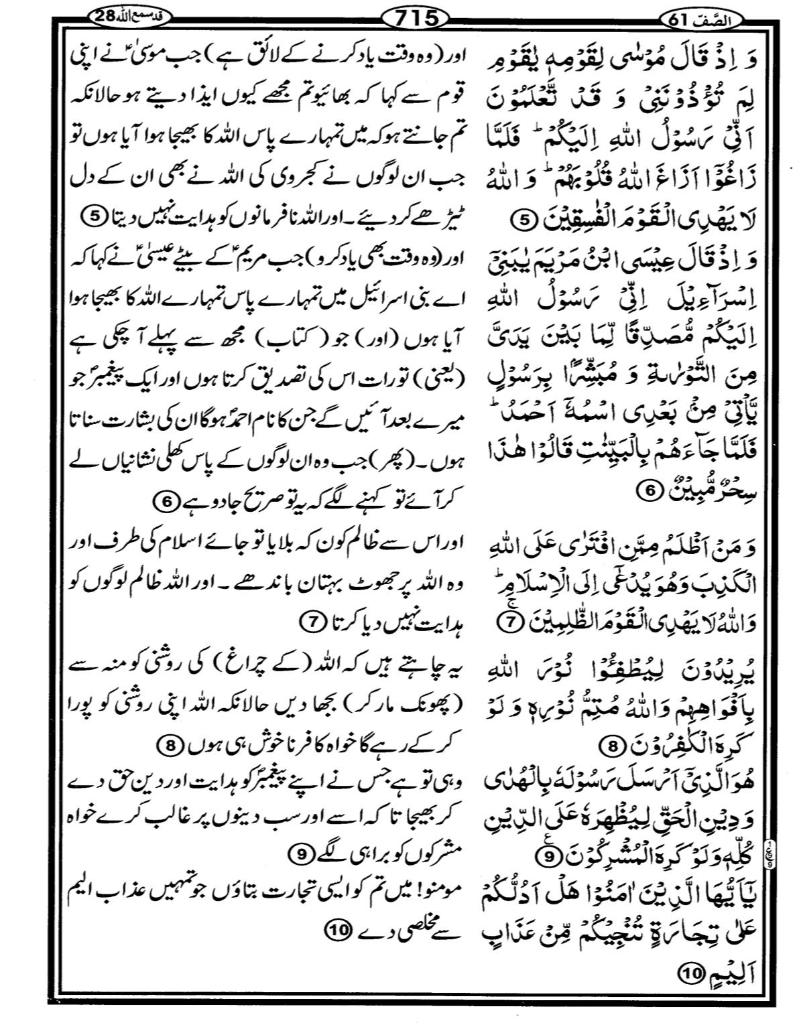 الصّف 61
715
قد سمع اللہ 28
وَ اِذْ قَالَ مُوْسٰى لِقَوْمِهٖ يٰقَوْمِ
لِمَ تُؤْذُوْنَنِيْ وَ قَدْ تَّعْلَمُوْنَ
اَنِّيْ رَسُوْلُ اللّٰهِ اِلَيْكُمْ ؕ فَلَمَّا
زَاغُوْۤا اَزَاغَ اللّٰهُ قُلُوْبَهُمْ ؕ وَ اللّٰهُ
لَا يَهْدِى الْقَوْمَ الْفٰسِقِيْنَ 5
وَ اِذْ قَالَ عِيْسَى ابْنُ مَرْيَمَ يٰبَنِيْۤ
اِسْرَآءِيْلَ اِنِّيْ رَسُوْلُ اللّٰهِ
اِلَيْكُمْ مُّصَدِّقًا لِّمَا بَيْنَ يَدَيَّ
مِنَ التَّوْرٰىةِ وَ مُبَشِّرًۢا بِرَسُوْلٍ
يَّاْتِيْ مِنْۢ بَعْدِى اسْمُهٗۤ اَحْمَدُ ؕ
فَلَمَّا جَآءَهُمْ بِالْبَيِّنٰتِ قَالُوْا هٰذَا
سِحْرٌ مُّبِيْنٌ 6
وَ مَنْ اَظْلَمُ مِمَّنِ افْتَرٰى عَلَى اللّٰهِ
الْكَذِبَ وَهُوَ يُدْعٰۤى اِلَى الْاِسْلَامِ ؕ
وَاللّٰهُ لَا يَهْدِى الْقَوْمَ الظّٰلِمِيْنَ 7
يُرِيْدُوْنَ لِيُطْفِـُٔوْا نُوْرَ اللّٰهِ
بِاَفْوَاهِهِمْ وَاللّٰهُ مُتِمُّ نُوْرِهٖ وَ لَوْ
كَرِهَ الْكٰفِرُوْنَ 8
هُوَ الَّذِيْۤ اَرْسَلَ رَسُوْلَهٗ بِالْهُدٰى
وَدِيْنِ الْحَقِّ لِيُظْهِرَهٗ عَلَى الدِّيْنِ
كُلِّهٖ وَلَوْ كَرِهَ الْمُشْرِكُوْنَ 9
يٰۤاَيُّهَا الَّذِيْنَ اٰمَنُوْا هَلْ اَدُلُّكُمْ
عَلٰى تِجَارَةٍ تُنْجِيْكُمْ مِّنْ عَذَابٍ
اَلِيْمٍ 10
اور (وہ وقت یاد کرنے کے لائق ہے) جب موسیٰؑ نے اپنی
قوم سے کہا کہ بھائیو تم مجھے کیوں ایذا دیتے ہو حالانکہ
تم جانتے ہو کہ میں تمہارے پاس اللہ کا بھیجا ہوا آیا ہوں تو
جب ان لوگوں نے کجروی کی اللہ نے بھی ان کے دل
ٹیڑھے کر دیئے۔ اور اللہ نافرمانوں کو ہدایت نہیں دیتا 5
اور (وہ وقت بھی یاد کرو) جب مریمؑ کے بیٹے عیسیٰؑ نے کہا کہ
اے بنی اسرائیل میں تمہارے پاس تمہارے اللہ کا بھیجا ہوا
آیا ہوں (اور) جو (کتاب) مجھ سے پہلے آ چکی ہے
(یعنی) تورات اس کی تصدیق کرتا ہوں اور ایک پیغمبرؐ جو
میرے بعد آئیں گے جن کا نام احمدؐ ہوگا ان کی بشارت سناتا
ہوں۔ (پھر) جب وہ ان لوگوں کے پاس کھلی نشانیاں لے
کر آئے تو کہنے لگے کہ یہ تو صریح جادو ہے 6
اور اس سے ظالم کون کہ بلایا تو جائے اسلام کی طرف اور
وہ اللہ پر جھوٹ بہتان باندھے۔ اور اللہ ظالم لوگوں کو
ہدایت نہیں دیا کرتا 7
یہ چاہتے ہیں کہ اللہ (کے چراغ) کی روشنی کو منہ سے
(پھونک مار کر) بجھا دیں حالانکہ اللہ اپنی روشنی کو پورا
کر کے رہے گا خواہ کافر ناخوش ہی ہوں 8
وہی تو ہے جس نے اپنے پیغمبرؐ کو ہدایت اور دین حق دے
کر بھیجا تا کہ اسے اور سب دینوں پر غالب کرے خواہ
مشرکوں کو برا ہی لگے 9
مومنو! میں تم کو ایسی تجارت بتاؤں جو تمہیں عذاب الیم
سے مخلصی دے 10